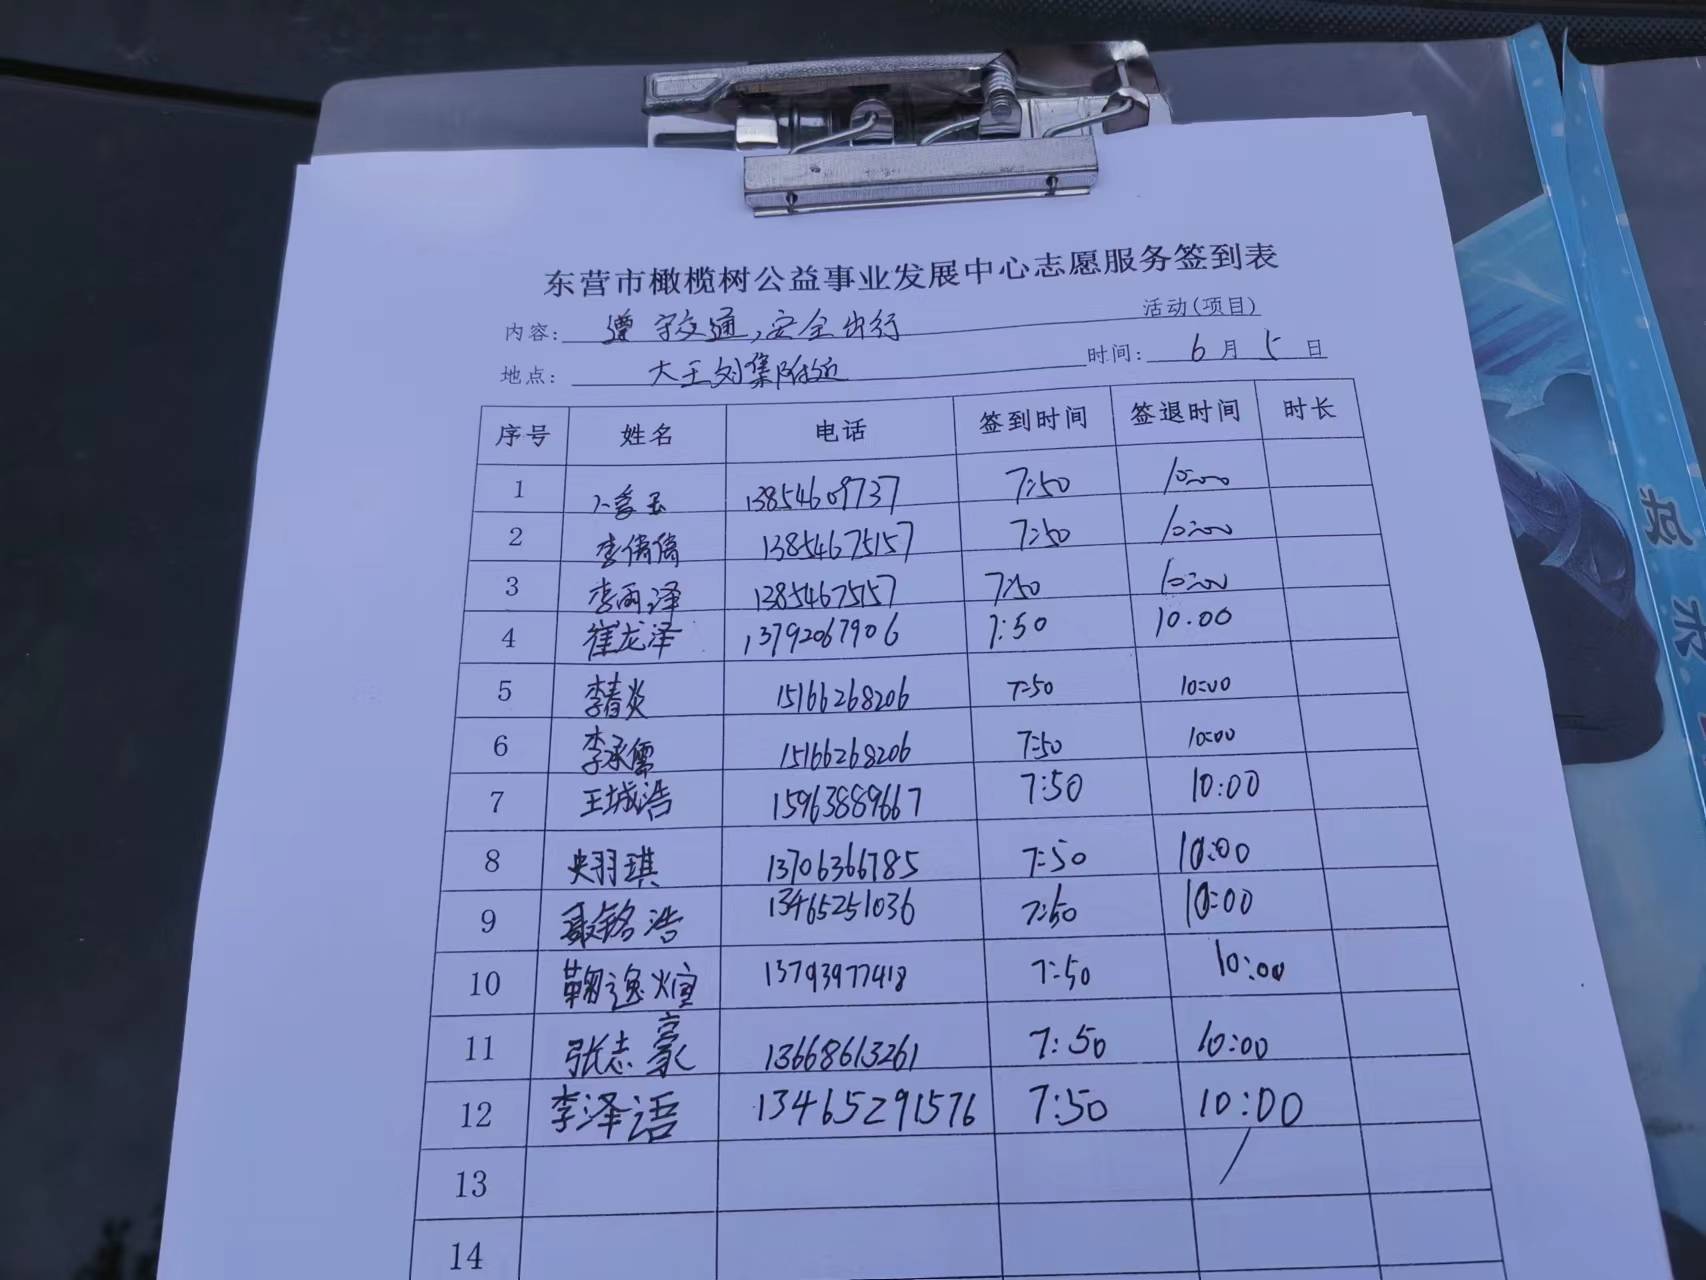 东营市橄榄树公益事业发展中心志愿服务签到表
内容: 遵守交通,安全出行 活动(项目)
地点: 大王刘集附近 时间: 6月5日
序号 姓名 电话 签到时间 签退时间 时长
1 13854609737 7:50 10:00
2 李倩倩 13854675157 7:50 10:00
3 李雨泽 13854675157 7:50 10:00
4 崔龙泽 13792067906 7:50 10.00
5 李春炎 15166268206 7:50 10:00
6 李承儒 15166268206 7:50 10:00
7 王城浩 15963889667 7:50 10:00
8 13706366785 7:50 10:00
9 聂铭浩 13465251036 7:50 10:00
10 鞠逸煊 13793977418 7:50 10:00
11 张志豪 13668613261 7:50 10:00
12 李泽语 13465291576 7:50 10:00
13
14
成
长